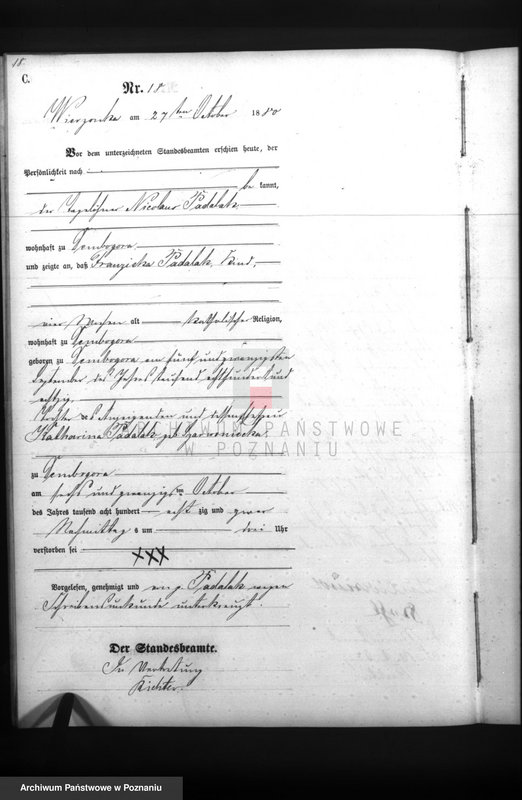 18.
C.
Nr. 18.
Wierzonka am 27ten October 1880
Vor dem unterzeichneten Standesbeamten erschien heute, der
Persönlichkeit nach
be kannt,
der Tagelöhner Nicolaus Padalak
wohnhaft zu Dembogora
und zeigte an, daß Franziska Padalak, Kind,
vier Wochen alt katholischer Religion,
wohnhaft zu Dembogora
geboren zu Dembogora am fünf und zwanzigsten
September des Jahres tausend achthundert und
achtzig,
Tochter des Anzeigenden und dessen Ehefrau
Katharina Padalak geb.
ARCHIWUM PAŃSTWOWE
W POZNANIU
zu Dembogora
am sechs und zwanzigsten October
des Jahres tausend acht hundert achtzig und zwar
Nachmittags um drei Uhr
verstorben sei
XXX
Vorgelesen, genehmigt und von p. Padalak wegen
Schreibensunkunde unterkreuzt.
Der Standesbeamte.
In Vertretung
Richter.
Archiwum Państwowe w Poznaniu